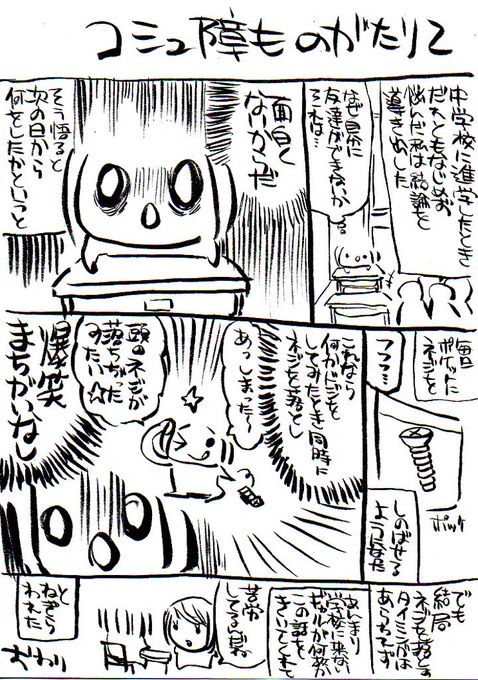 コミュ障ものがたり2
中学校に進学したとき
だれともなじめず
悩んだ私は結論を
導き出した
なぜ自分に
友達ができないか
それは…
面白く
ないからだ
そう悟ると
次の日から
何をしたかというと
毎日
ポケットに
ネジを
フフフ…
ポッケ
しのばせる
ようになった
これなら
何かドジを
してみたとき同時に
ネジを落とし
あっしまった〜
頭のネジが
落ちちゃった
みたい☆
爆笑
まちがいなし
でも
結局
ネジを落とす
タイミングは
あらわれず
あんまり
学校に来ない
ギャルが何故か
この話を
きいてくれて
苦労
してるね
と
ねぎら
われた
おわり